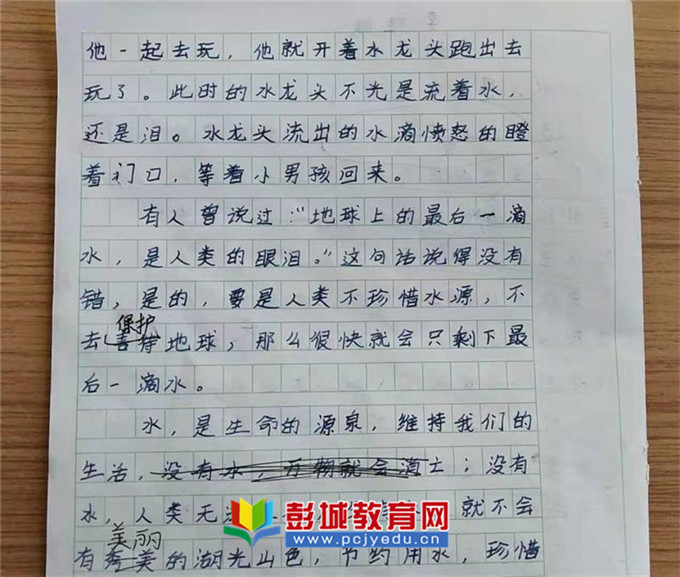 他一起去玩，他就开着水龙头跑出去
玩了。此时的水龙头不光是流着水，
还是泪。水龙头流出的水滴愤怒的瞪
着门口，等着小男孩回来。
有人曾说过：“地球上的最后一滴
水，是人类的眼泪。”这句话说得没有
错，是的，要是人类不珍惜水源，不
保护
去善待地球，那么很快就会只剩下最
后一滴水。
水，是生命的源泉，维持我们的
生活，没有水，万物就会消亡；没有
水，人类无 就不会
美丽
有秀美的湖光山色，节约用水，珍惜
彭城教育网
www.pcjyedu.cn